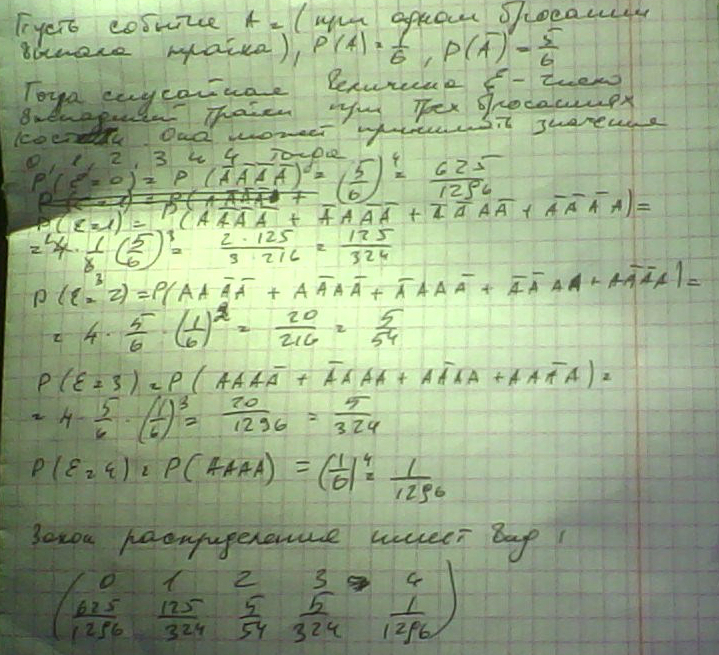 Пусть событие A = (при одном бросании
выпала тройка), P(A) = 1/6, P(Ā) = 5/6
Тогда случайная величина ξ - число
выпадений тройки при трех бросаниях
кости. Она может принимать значения
0, 1, 2, 3 и 4. Тогда
P(ξ=0) = P(ĀĀĀĀ) = (5/6)^4 = 625/1296
P(ξ=1) = P(AĀĀĀ + ĀAĀĀ + ĀĀAĀ + ĀĀĀA) =
= 4 · 1/6 (5/6)^3 = 2·125/3·216 = 125/324
P(ξ=2) = P(AAĀĀ + AĀAĀ + ĀAAĀ + ĀĀAA + AĀĀA) =
= 4 · 5/6 · (1/6)^2 = 20/216 = 5/54
P(ξ=3) = P(AAAĀ + ĀAAA + AĀAA + AAĀA) =
= 4 · 5/6 · (1/6)^3 = 20/1296 = 5/324
P(ξ=4) = P(AAAA) = (1/6)^4 = 1/1296
Закон распределения имеет вид:
0 1 2 3 4
625/1296 125/324 5/54 5/324 1/1296